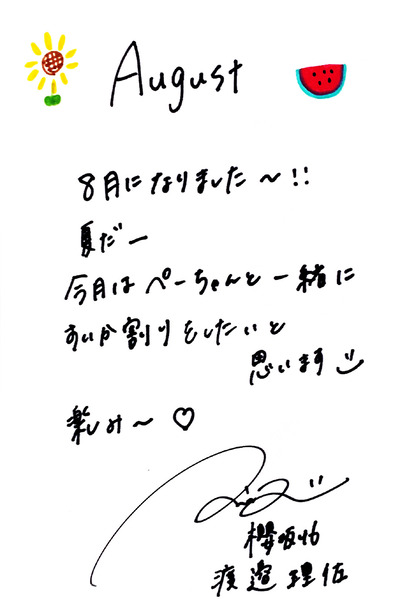 August
8月になりました〜!!
夏だー
今月はぺーちゃんと一緒に
すいか割りをしたいと
思います
楽しみ〜♡
櫻坂46
渡邉理佐